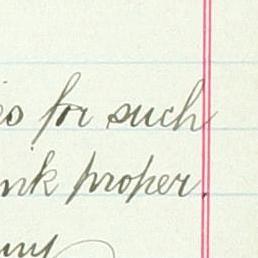 for such
nk proper.